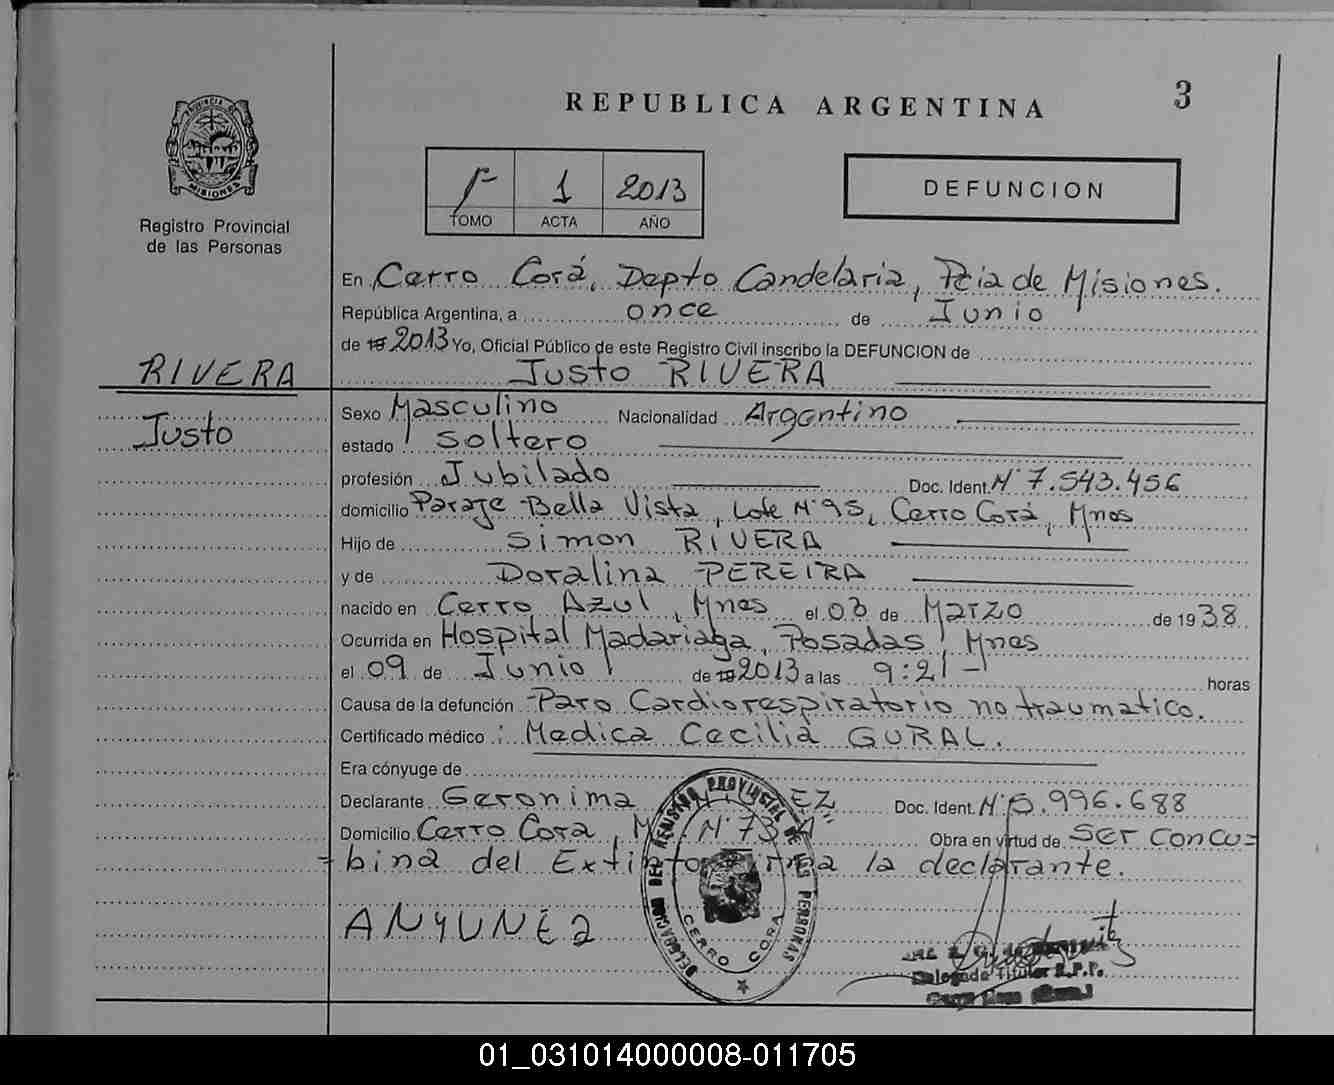 REPUBLICA ARGENTINA
3
PROVINCIA DE MISIONES
Registro Provincial
de las Personas
1 2013
TOMO ACTA AÑO
DEFUNCION
En Cerro Corá, Depto Candelaria, Pcia de Misiones.
República Argentina, a once de Junio
de 19 2013 Yo, Oficial Público de este Registro Civil inscribo la DEFUNCION de
RIVERA
Justo RIVERA
Justo
Sexo Masculino Nacionalidad Argentino
estado Soltero
profesión Jubilado Doc. Ident. Nº 7.543.456
domicilio Paraje Bella Vista, Lote Nº 95, Cerro Corá, Mnes
Hijo de Simon RIVERA
y de Doralina PEREIRA
nacido en Cerro Azul, Mnes el 03 de Marzo de 1938
Ocurrida en Hospital Madariaga, Posadas, Mnes
el 09 de Junio de 19 2013 a las 9:21 horas
Causa de la defunción Paro Cardiorespiratorio no traumatico.
Certificado médico : Medica Cecilia GURAL.
Era cónyuge de
Declarante Geronima Doc. Ident. Nº 996.688
Domicilio Cerro Cora, Nº 73 Obra en virtud de ser concu=
=bina del Extinto firma la declarante.
ANYUNEZ
DELEGACION DEL REGISTRO PROVINCIAL DE LAS PERSONAS
CERRO CORA
Titular R.P.P.
01_031014000008-011705